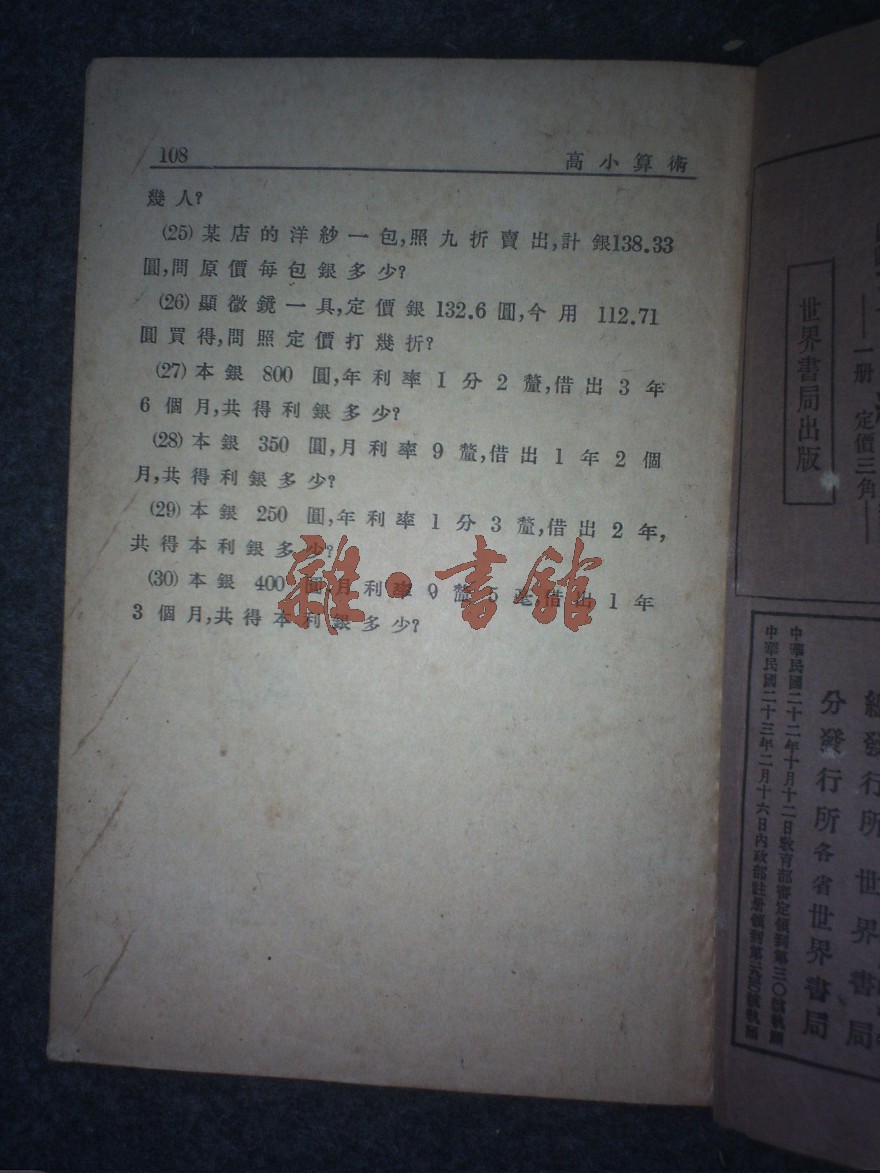 108 高小算術
幾人?
(25) 某店的洋紗一包,照九折賣出,計銀138.33
圓,問原價每包銀多少?
(26) 顯微鏡一具,定價銀132.6圓,今用 112.71
圓買得,問照定價打幾折?
(27) 本銀 800 圓,年利率1分2釐,借出3年
6個月,共得利銀多少?
(28) 本銀 350 圓,月利率9釐,借出1年2個
月,共得利銀多少?
(29) 本銀 250 圓,年利率1分3釐,借出2年,
共得本利銀多少?
(30) 本銀 400 圓,月利率9釐5毫借出1年
3個月,共得本利銀多少?
雜·書館
一册 定價三角
世界書局出版
總發行所 世界書局
分發行所 各省世界書局
中華民國二十二年十月十二日敎育部審定領到第三〇號執照
中華民國二十三年二月十六日內政部註册領到第號執照